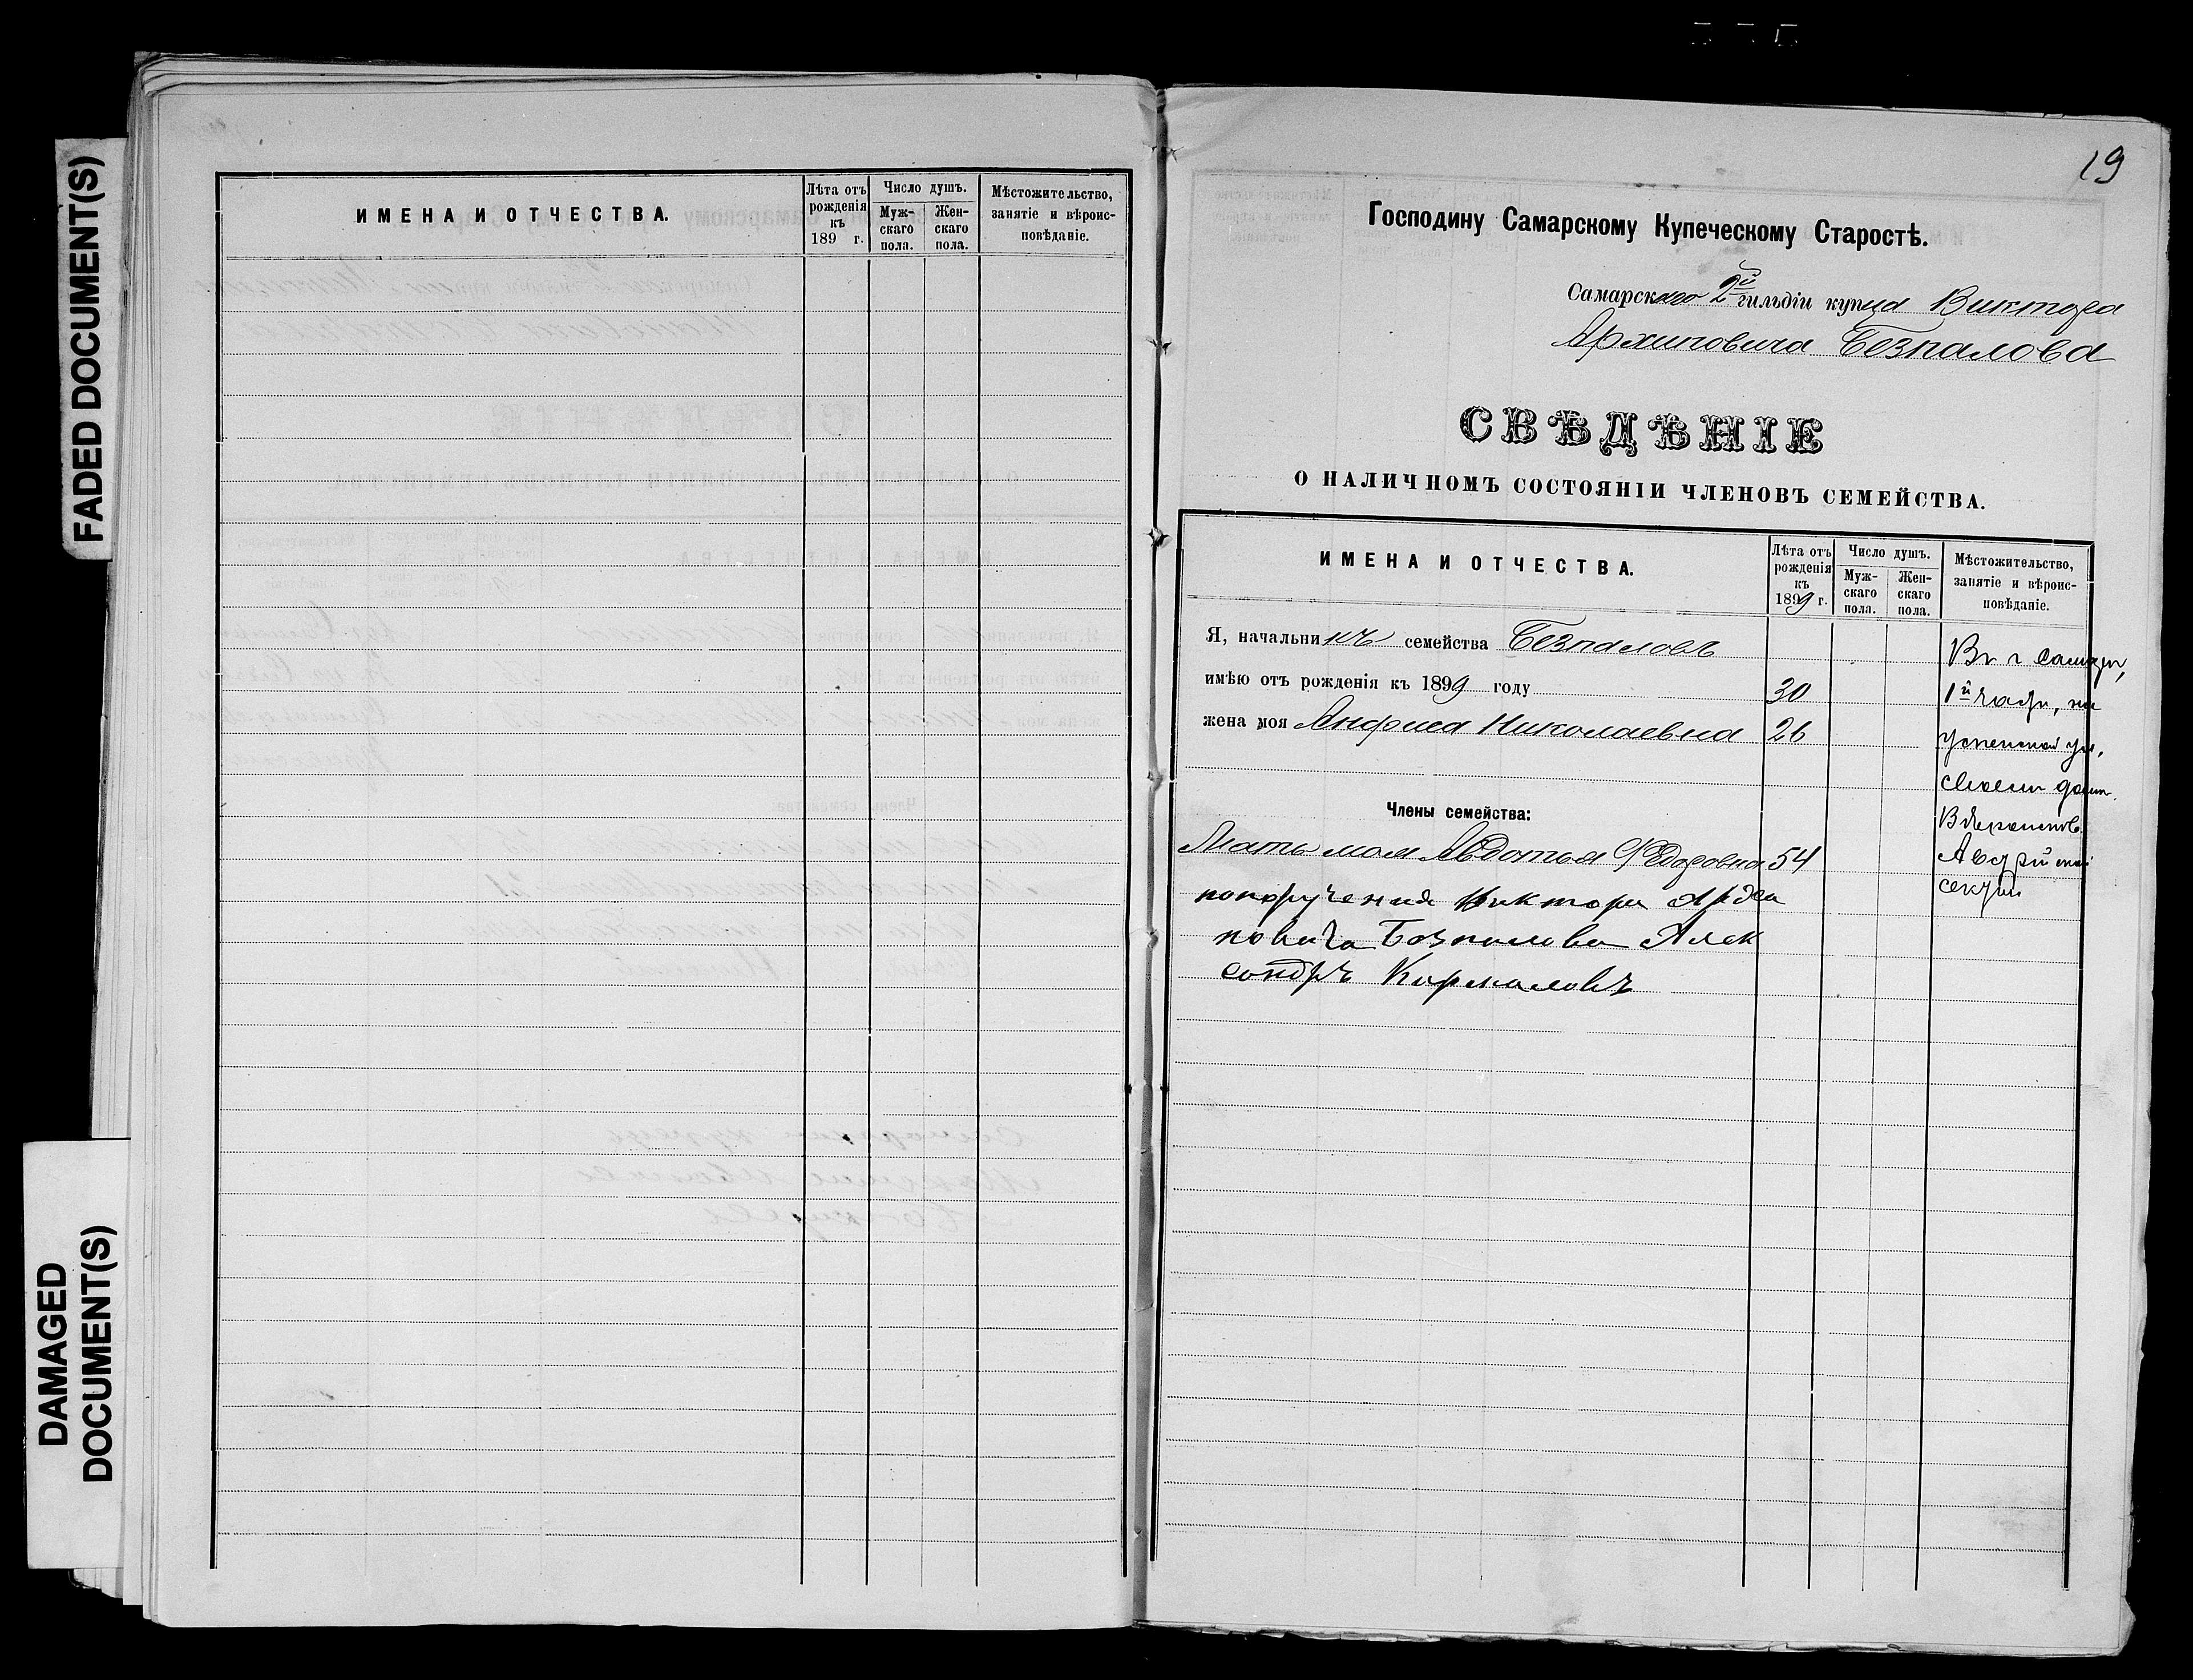 FADED DOCUMENT(S)
DAMAGED
DOCUMENT(S)
ИМЕНА И ОТЧЕСТВА.
Лѣта отъ
рожденія
къ
189 г.
Число душъ.
Муж-
скаго
пола.
Жен-
скаго
пола.
Мѣстожительство,
занятіе и вѣроис-
повѣданіе.
19
Господину Самарскому Купеческому Старостѣ.
Самарскаго 2й гильдіи купца Виктора
Архиповича Безпалова
СВѢДѢНІЕ
О НАЛИЧНОМЪ СОСТОЯНІИ ЧЛЕНОВЪ СЕМЕЙСТВА.
ИМЕНА И ОТЧЕСТВА.
Лѣта отъ
рожденія
къ
1899 г.
Число душъ.
Муж-
скаго
пола.
Жен-
скаго
пола.
Мѣстожительство,
занятіе и вѣроис-
повѣданіе.
Я, начальникъ семейства Безпаловъ
имѣю отъ рожденія къ 1899 году 30
жена моя Анфиса Николаевна 26
Члены семейства:
Мать моя Авдотья Федоровна 54
попоручения Виктора Архи
повича Безпалова Алек
сондръ Кормаловъ
Въ г Самарѣ,
1й части, на
Успенской ул,
своемъ домѣ.
Австрійской
секты